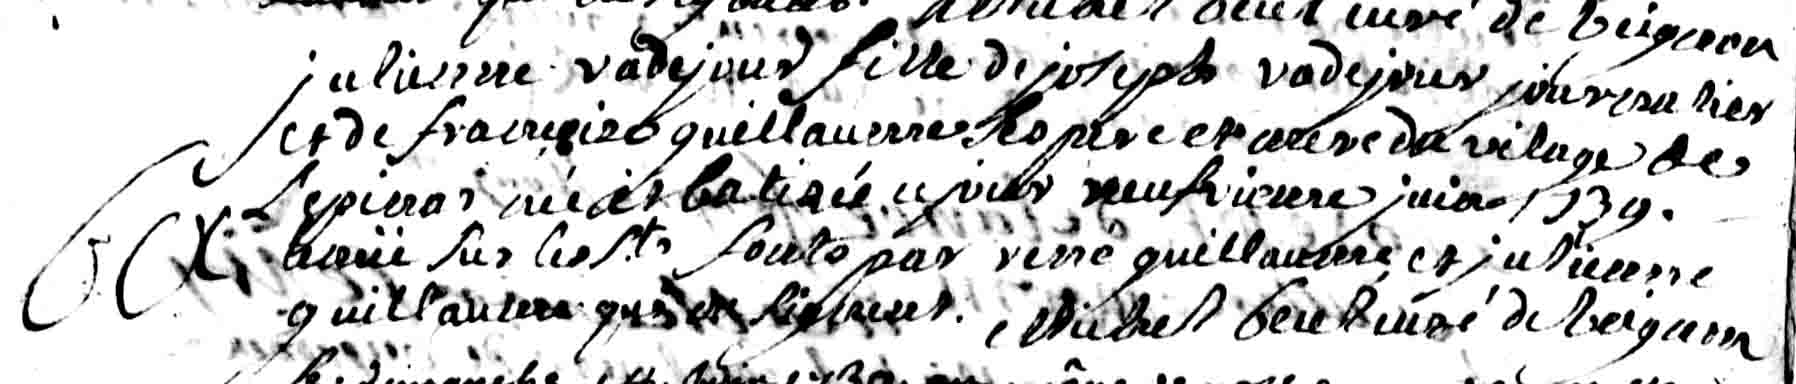 curé de beignon
julienne vadejour fille de joseph vadejour journalier
et de françoise guillaume ses pere et mere du vilage de
l'epinas née et batisée ce jour neufvieme juin 1739.
tenüe sur les sts fonts par renée guillaume et julienne
guillaume qui ne signent. Michel curé de beignon